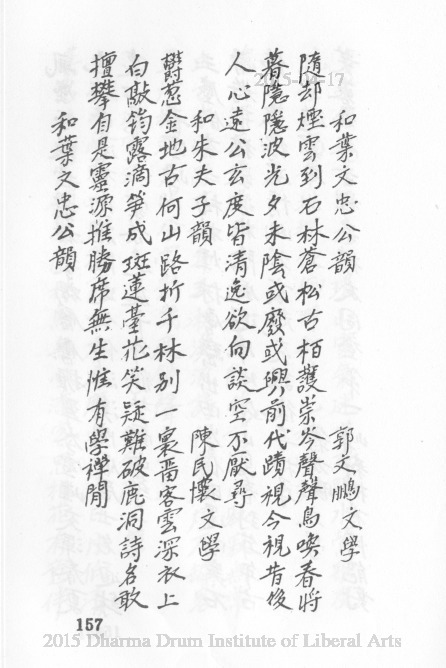 和葉文忠公韻　郭文鵬文學
隨却煙雲到石林蒼松古栢護崇岑聲聲鳥喚春將
暮隱隱波光夕未陰或廢或興前代蹟視今視昔後
人心遠公玄度皆清逸欲向談空不厭尋
和朱夫子韻　陳民懷文學
欝葱金地古何山路折千林別一寰畨客雲深衣上
白敲筠露滴笋成斑蓮臺花笑疑難破鹿洞詩名敢
擅攀自是靈源推勝席無生惟有學禪閒
和葉文忠公韻
157
2015-04-17
2015 Dharma Drum Institute of Liberal Arts